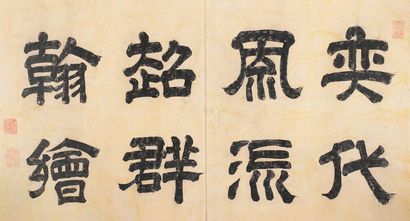 奕代
風流
超群
翰繪